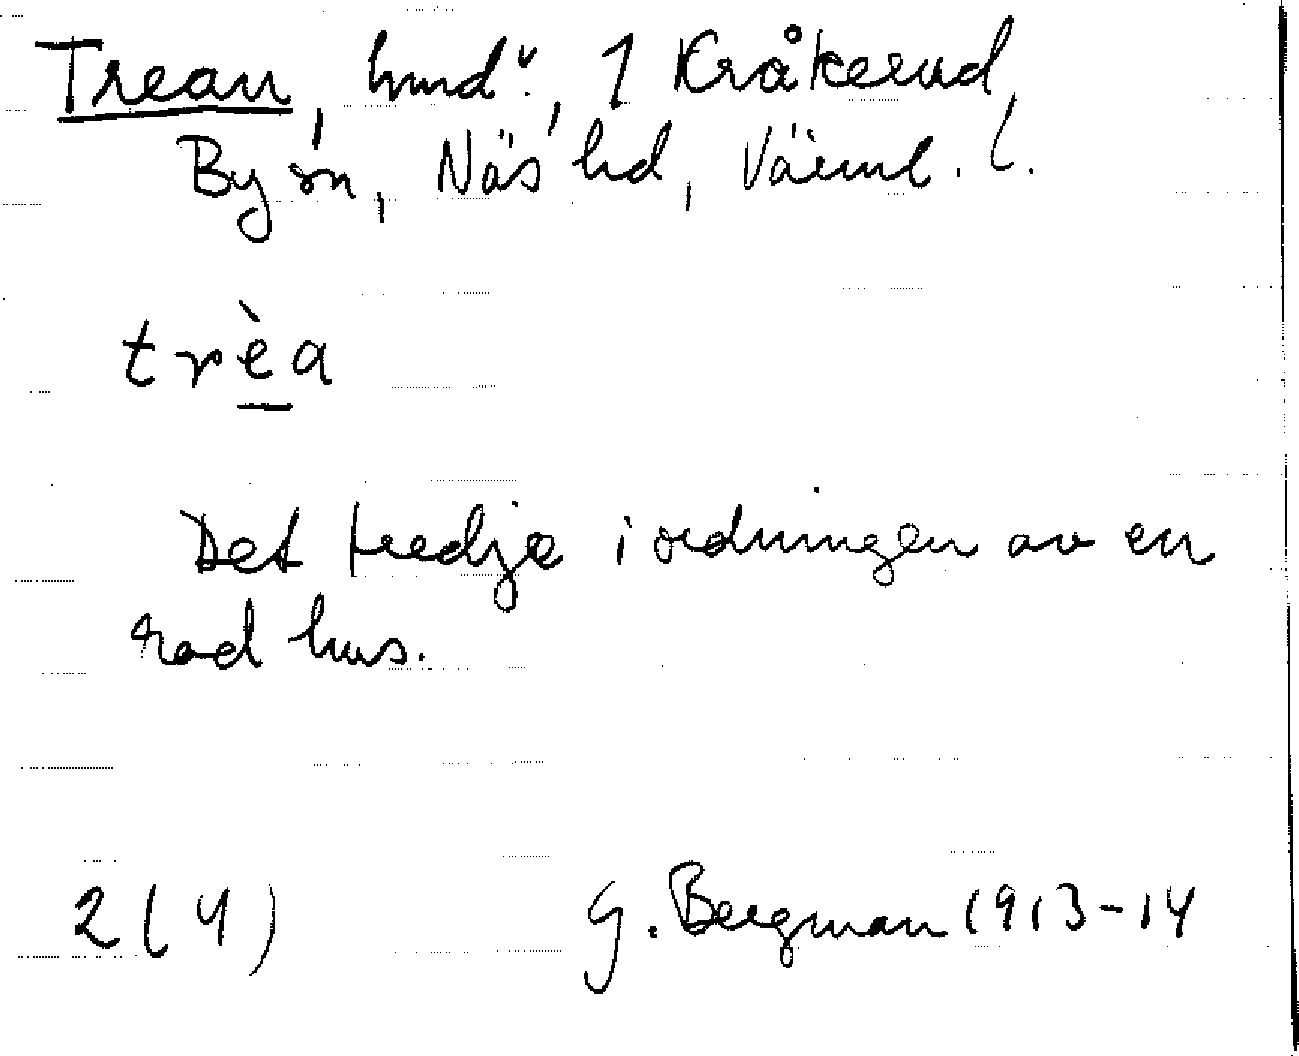 Trean, hmd:, 1 Kråkerud,
By sn, Näs hd, Värml. l.
trèa
Det tredje i ordningen av en
rad hus.
2 (4) G. Bergman 1913-14